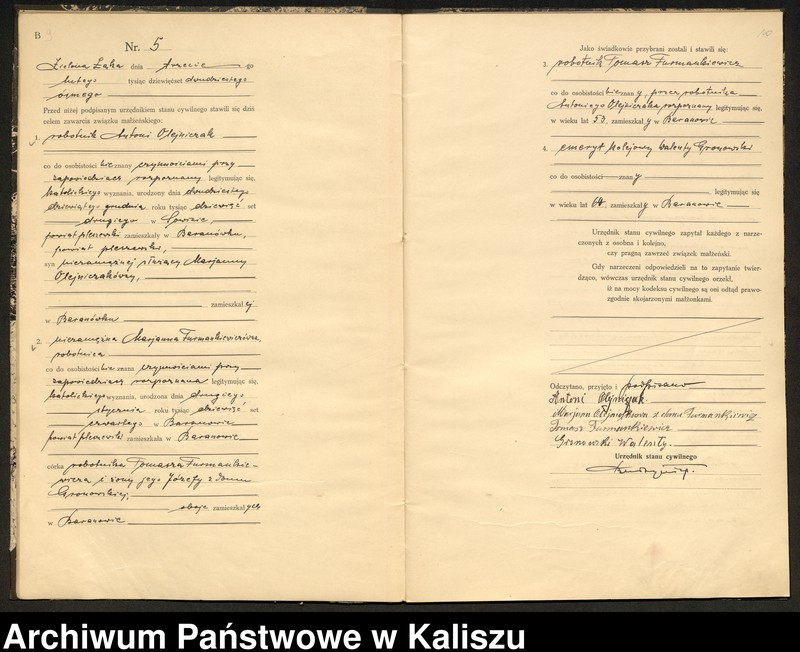 B 9
Nr. 5
Zielona Łąka dnia trzecie go
lutego tysiąc dziewięćset dwudziestego
ósmego
Przed niżej podpisanym urzędnikiem stanu cywilnego stawili się dziś
celem zawarcia związku małżeńskiego:
1. robotnik Antoni Olejniczak
co do osobistości nieznany czynnościami przy
zapowiedziach rozpoznany legitymując się,
katolickiego wyznania, urodzony dnia dwudziestego
dziewiątego grudnia roku tysiąc dziewięć set
drugiego w
powiat pleszewski zamieszkały w Baranówku,
powiat pleszewski,
syn niezamężnej służącej Marjanny
Olejniczakówny,
zamieszkał ej
w Baranówku
2. niezamężna Marjanna Furmankiewiczówna,
robotnica
co do osobistości nie znana czynnościami przy
zapowiedziach rozpoznana legitymując się,
katolickiego wyznania, urodzona dnia drugiego
stycznia roku tysiąc dziewięć set
czwartego w Baranowie
powiat pleszewski zamieszkała w Baranowie
córka robotnika Tomasza Furmankie-
wicza i żony jego Józefy z domu
Gronowskiej,
oboje zamieszkał ych
w Baranowie
10
Jako świadkowie przybrani zostali i stawili się:
3. robotnik Tomasz Furmankiewicz
co do osobistości nieznan y, przez robotnika
Antoniego Olejniczaka rozpoznany legitymując się,
w wieku lat 53, zamieszkał y w Baranowie
4. emeryt kolejowy Walenty Gronowski
co do osobistości znan y
legitymując się
w wieku lat 64, zamieszkał y w Baranowie
Urzędnik stanu cywilnego zapytał każdego z narze-
czonych z osobna i kolejno,
czy pragną zawrzeć związek małżeński.
Gdy narzeczeni odpowiedzieli na to zapytanie twier-
dząco, wówczas urzędnik stanu cywilnego orzekł,
iż na mocy kodeksu cywilnego są oni odtąd prawo-
zgodnie skojarzonymi małżonkami.
Odczytano, przyjęto i podpisano
Antoni
z domu Furmankiewicz
Tomasz Furmankiewicz
Gronowski Walenty.
Urzędnik stanu cywilnego
Archiwum Państwowe w Kaliszu